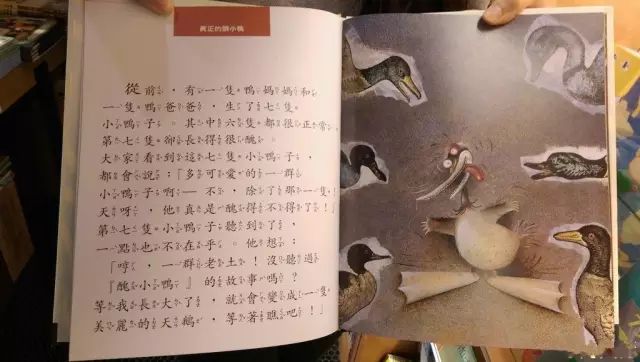 真正的醜小鴨
從前，有一隻鴨媽媽和
一隻鴨爸爸，生了七隻
小鴨子。其中六隻都很正常，
第七隻卻長得很醜。
大家看到這七隻小鴨子，
都會說：「多可愛的一群
小鴨子啊！－不，除了那一隻！
天呀，他真是醜得不得了！」
第七隻小鴨子聽到了，
一點也不在乎。他想：
「哼，一群老土！沒聽過
『醜小鴨』的故事嗎？
等我長大了，就會變成一隻
美麗的天鵝，等著瞧吧！」